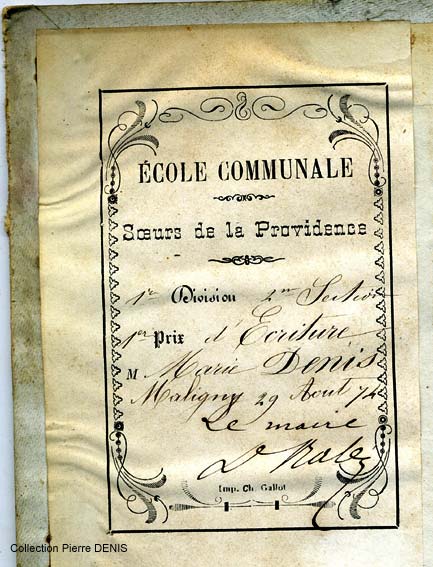 ÉCOLE COMMUNALE
Sœurs de la Providence
1re Division 2me Section
1er Prix d'Écriture
M Marie Denis
Maligny 29 Août 74
Le maire
Imp. Ch. Gallot
Collection Pierre DENIS